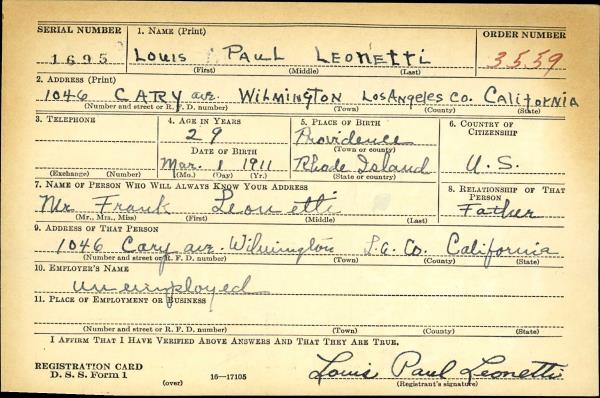 SERIAL NUMBER 1. NAME (Print) ORDER NUMBER
1695 LOUIS PAUL LEONETTI 3559
(First) (Middle) (Last)
2. ADDRESS (Print)
1046 CARY ave. WILMINGTON LOS ANGELES CO. CALIFORNIA
(Number and street or R. F. D. number) (Town) (County) (State)
3. TELEPHONE 4. AGE IN YEARS 5. PLACE OF BIRTH 6. COUNTRY OF CITIZENSHIP
29 Providence
DATE OF BIRTH (Town or county)
Mar. 1 1911 Rhode Island U.S.
(Exchange) (Number) (Mo.) (Day) (Yr.) (State or country)
7. NAME OF PERSON WHO WILL ALWAYS KNOW YOUR ADDRESS 8. RELATIONSHIP OF THAT PERSON
Mr. Frank Leonetti Father
(Mr., Mrs., Miss) (First) (Middle) (Last)
9. ADDRESS OF THAT PERSON
1046 Cary ave. Wilmington L.A. Co. California
(Number and street or R. F. D. number) (Town) (County) (State)
10. EMPLOYER'S NAME
unemployed
11. PLACE OF EMPLOYMENT OR BUSINESS
(Number and street or R. F. D. number) (Town) (County) (State)
I AFFIRM THAT I HAVE VERIFIED ABOVE ANSWERS AND THAT THEY ARE TRUE.
REGISTRATION CARD Louis Paul Leonetti
D. S. S. Form 1 (over) 16—17105 (Registrant's signature)